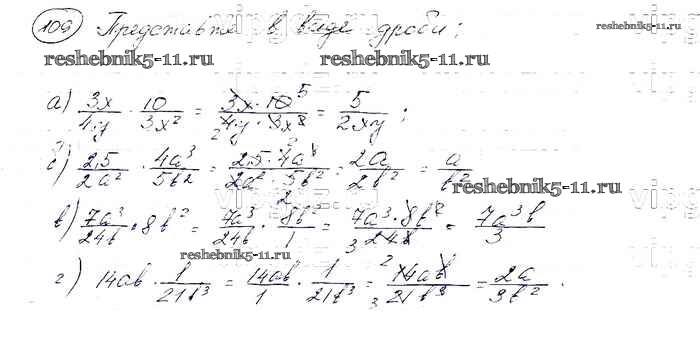 109 Представить в виде дроби;
reshebnik5-11.ru
reshebnik5-11.ru
а) 3x/4y · 10/3x² = 3x·10/4y·3x² = 5/2xy;
б) 2,5/2a² · 4a³/5b² = 2,5·4a³/2a²·5b² = 2a/2b² = a/b²
reshebnik5-11.ru
в) 7a³/24b · 8b² = 7a³/24b · 8b²/1 = 7a³·8b²/24b = 7a³b/3
reshebnik5-11.ru
г) 14ab · 1/21b³ = 14ab/1 · 1/21b³ = 14ab/21b³ = 2a/3b².